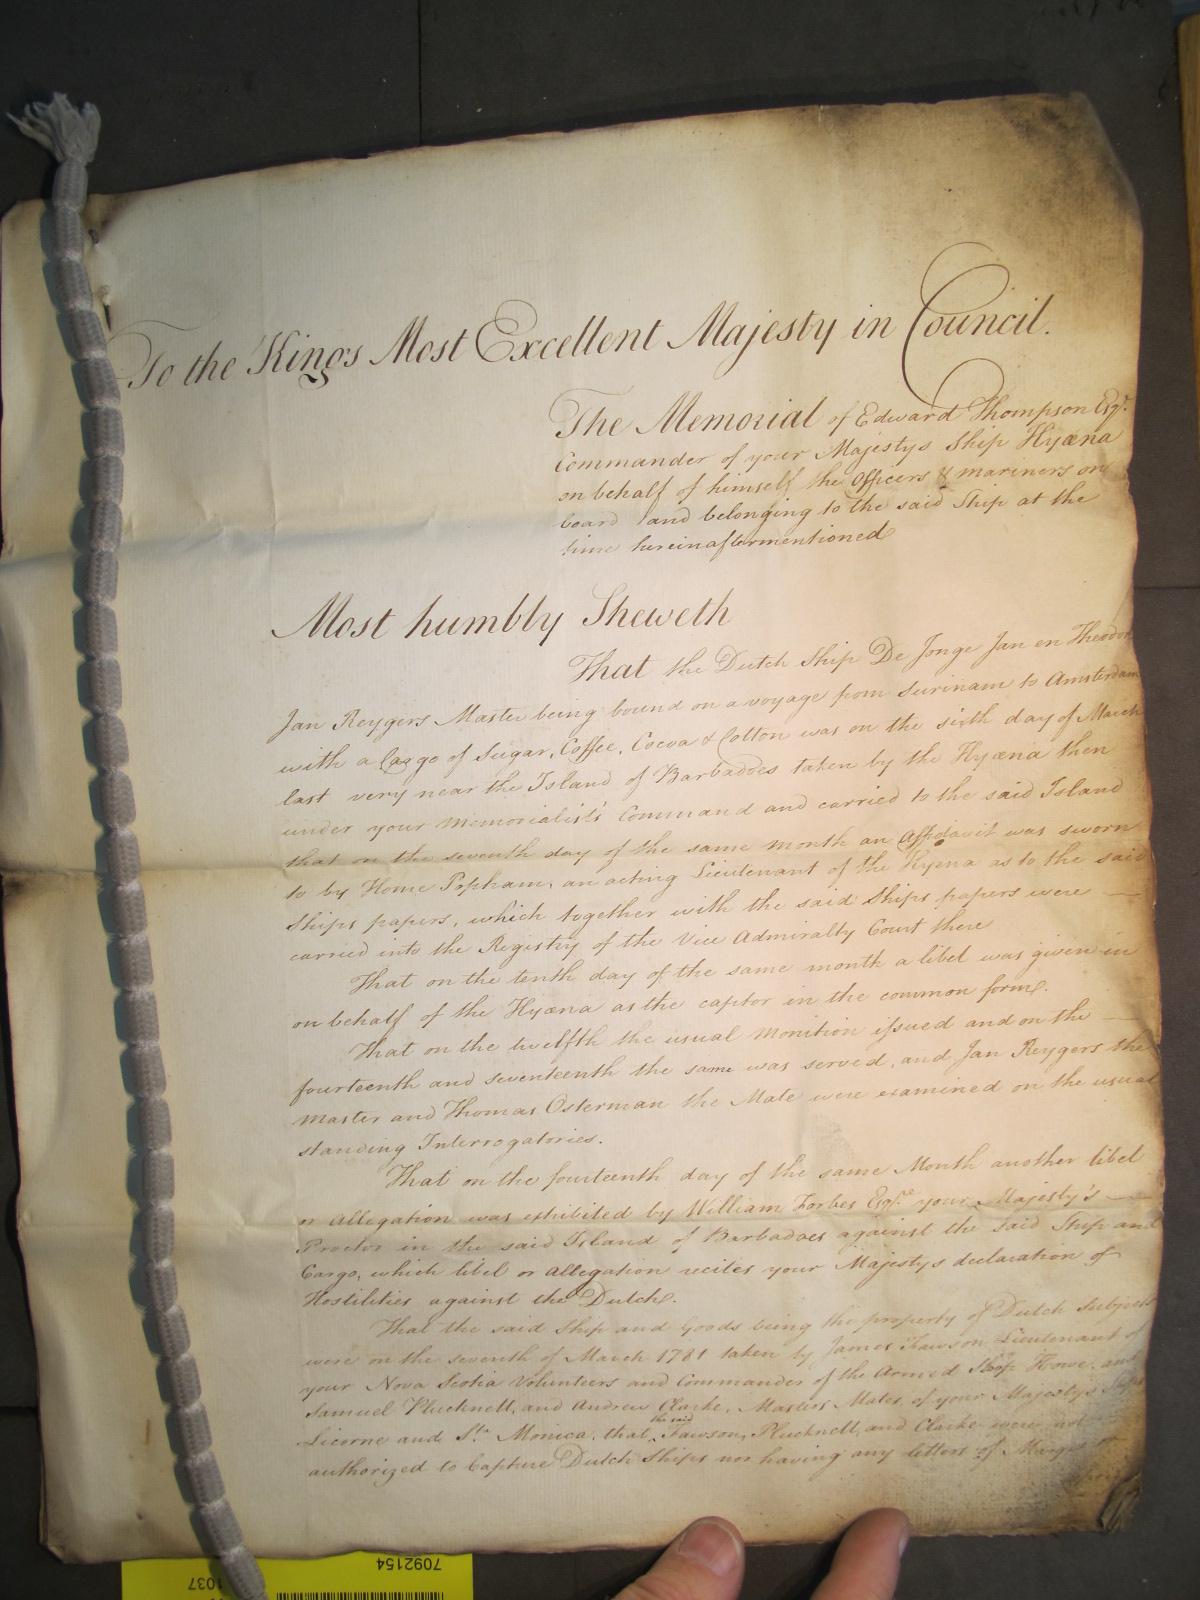 To the Kings Most Excellent Majesty in Council.
The Memorial of Edward Thompson Esqr.
Commander of your Majestys Ship Hyæna
on behalf of himself the Officers & mariners on
board and belonging to the said Ship at the
time hereinaftermentioned
Most humbly Sheweth
That the Dutch Ship De Jonge Jan en Theodor
Jan Reygers Master being bound on a voyage from Surinam to Amsterdam
with a Cargo of Sugar, Coffee, Cocoa & Cotton was on the sixth day of March
last very near the Island of Barbadoes taken by the Hyæna then
under your Memorialist's Command and carried to the said Island
that on the seventh day of the same month an Affidavit was sworn
to by Home Popham, an acting Lieutenant of the Hyæna as to the said
Ships papers, which together with the said Ships papers were
carried into the Registry of the Vice Admiralty Court there
That on the tenth day of the same month a libel was given in
on behalf of the Hyæna as the captor in the common form.
That on the twelfth the usual Monition issued and on the
fourteenth and seventeenth the same was served, and Jan Reygers the
Master and Thomas Osterman the Mate were examined on the usual
standing Interrogatories.
That on the fourteenth day of the same Month another libel
or Allegation was exhibited by William Forbes Esqr. your Majesty's
Proctor in the said Island of Barbadoes against the said Ship and
Cargo, which libel or Allegation recites your Majestys declaration of
Hostilities against the Dutch.
That the said Ship and Goods being the property of Dutch Subjects
were on the seventh of March 1781 taken by James Fawson Lieutenant of
your Nova Scotia Volunteers and Commander of the Armed Sloop Howe, and
Samuel Plucknell, and Andrew Clarke, Masters Mates of your Majestys Ships
Licorne and Sta. Monica, that the said Fawson, Plucknell, and Clarke were not
authorized to Capture Dutch Ships nor having any letters of Marque or
7092154
1037